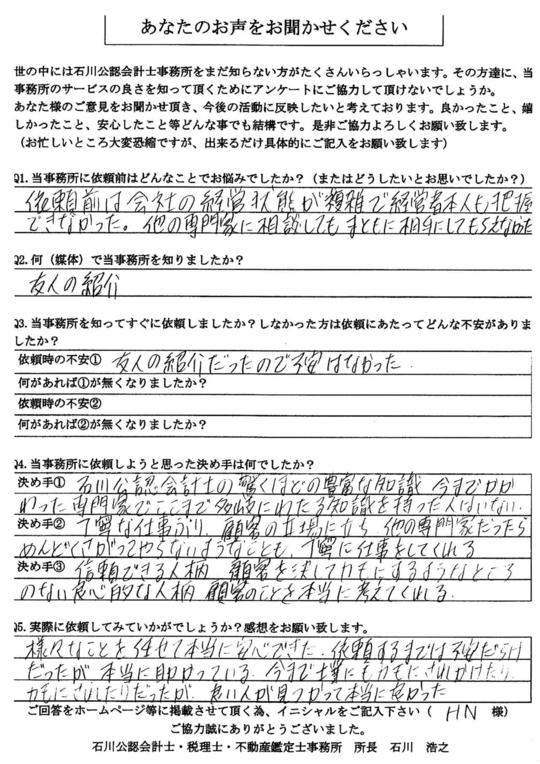 あなたのお声をお聞かせください
世の中には石川公認会計士事務所をまだ知らない方がたくさんいらっしゃいます。その方達に、当
事務所のサービスの良さを知って頂くためにアンケートにご協力して頂けないでしょうか。
あなた様のご意見をお聞かせ頂き、今後の活動に反映したいと考えております。良かったこと、嬉
しかったこと、安心したこと等どんな事でも結構です。是非ご協力よろしくお願い致します。
（お忙しいところ大変恐縮ですが、出来るだけ具体的にご記入をお願い致します）
Q1.当事務所に依頼前はどんなことでお悩みでしたか？（またはどうしたいとお思いでしたか？）
依頼前は会社の経営状態が複雑で経営者本人も把握
できなかった。他の専門家に相談してもまともに相手にしてもらえなかった
Q2.何（媒体）で当事務所を知りましたか？
友人の紹介
Q3.当事務所を知ってすぐに依頼しましたか？しなかった方は依頼にあたってどんな不安がありま
したか？
依頼時の不安① 友人の紹介だったので不安はなかった.
何があれば①が無くなりましたか？
依頼時の不安②
何があれば②が無くなりましたか？
Q4.当事務所に依頼しようと思った決め手は何でしたか？
決め手① 石川公認会計士の驚くほどの豊富な知識 今までかか
わった専門家でここまで多岐にわたる知識を持った人はいない.
決め手② 丁寧な仕事ぶり 顧客の立場に立ち 他の専門家だったら
めんどくさがってやらないようなことも、丁寧に仕事をしてくれる
決め手③ 信頼できる人柄 顧客を決してカモにするようなところ
のない良心的な人柄 顧客のことを本当に考えてくれる.
Q5.実際に依頼してみていかがでしょうか？感想をお願い致します。
様々なことを任せて本当に安心できた. 依頼するまでは不安だらけ
だったが 本当に助かっている. 今まで士業にもカモにされかけたり
カモにされたりだったが、良い人が見つかって本当に良かった
ご回答をホームページ等に掲載させて頂く為、イニシャルをご記入下さい（ HN 様）
ご協力誠にありがとうございました。
石川公認会計士・税理士・不動産鑑定士事務所 所長 石川 浩之